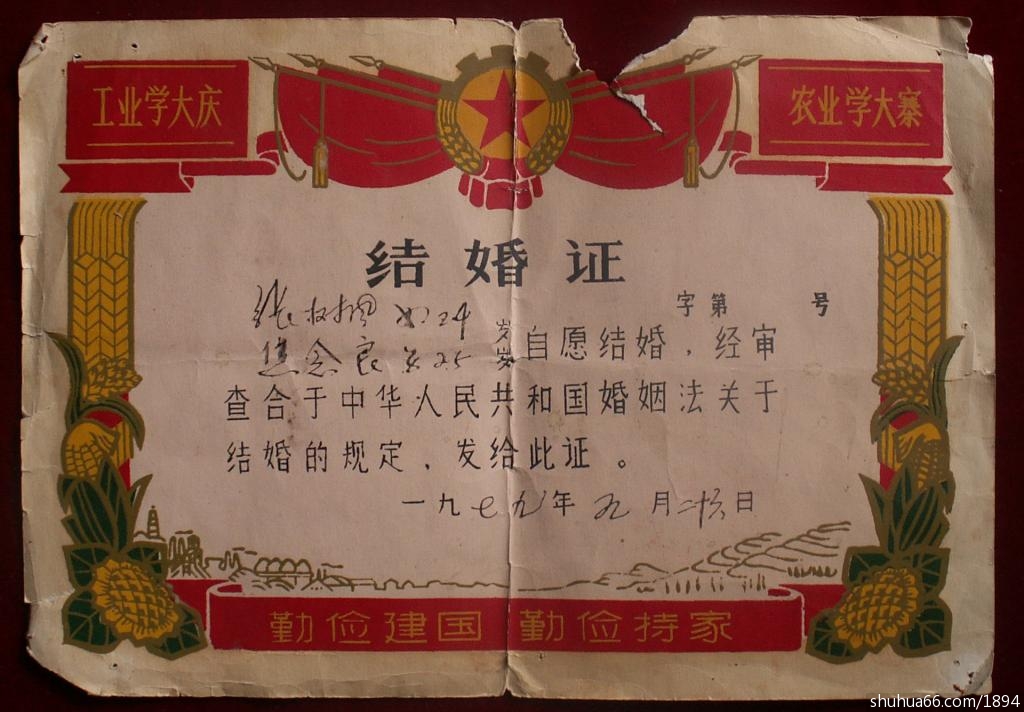 工业学大庆
农业学大寨
结婚证
字第 号
张树 24岁
焦念良 25岁 自愿结婚，经审
查合于中华人民共和国婚姻法关于
结婚的规定，发给此证。
一九七九年九月二十六日
勤俭建国 勤俭持家
shuhua66.com/1894